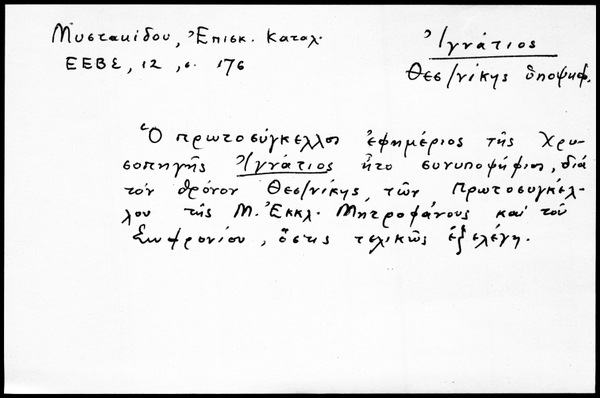 Μυστακίδου, Ἐπισκ. Καταλ.
ΕΕΒΣ, 12, σ. 176
Ἰγνάτιος
Θεσ/νίκης ὑποψηφ.
Ὁ πρωτοσύγκελλος ἐφημέριος τῆς Χρυ-
σοπηγῆς Ἰγνάτιος ἦτο συνυποψήφιος, διὰ
τὸν θρόνον Θεσ/νίκης, τῶν Πρωτοσυγκέλ-
λου τῆς Μ. Ἐκκλ. Μητροφάνους καὶ τοῦ
Σωφρονίου, ὅστις τελικῶς ἐξελέγη.